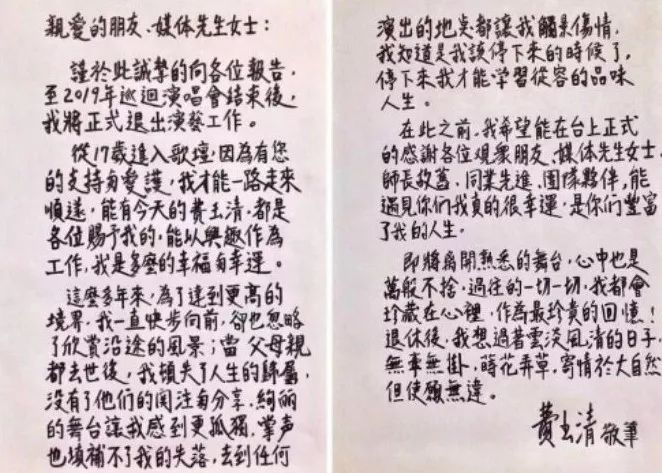 親愛的朋友、媒体先生女士：
謹於此誠摯的向各位報告，
至2019年巡迴演唱會結束後，
我將正式退出演藝工作。
從17歲進入歌壇，因為有您
的支持與愛護，我才能一路走來
順遂，能有今天的費玉清，都是
各位賜予我的，能以興趣作為
工作，我是多麼的幸福與幸運。
這麼多年來，為了達到更高的
境界，我一直快步向前，卻也忽略
了欣賞沿途的風景；當父母親
都去世後，我頓失了人生的歸屬，
沒有了他們的関注與分享，絢麗
的舞台讓我感到更孤獨，掌声
也填補不了我的失落，去到任何
演出的地点都讓我觸景傷情，
我知道是我該停下來的時候了，
停下來我才能学習從容的品味
人生。
在此之前，我希望能在台上正式
的感謝各位観衆朋友、媒体先生女士、
師長故舊、同業先進、團隊夥伴，能
遇見你們我真的很幸運，是你們豐富
了我的人生。
即將離開熟悉的舞台，心中也是
萬般不捨，過往的一切一切，我都會
珍藏在心裡，作為最珍貴的回憶！
退休後，我想過着雲淡風清的日子，
無牽無掛，蒔花弄草，寄情於大自然
但使願無違。
費玉清 敬筆